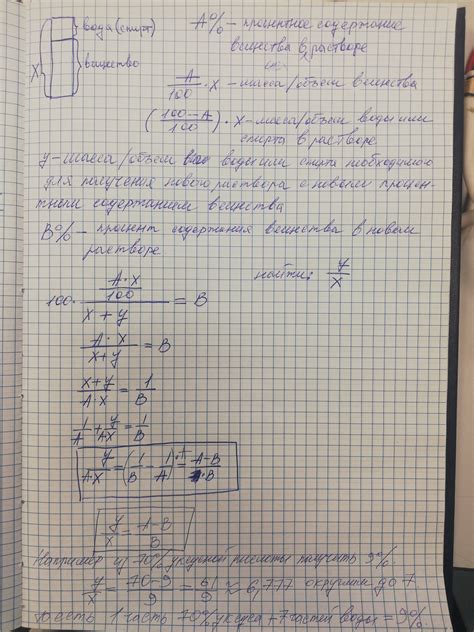 вода (спирт)
вещество
X
A% – процентное содержание
вещества в растворе
A/100 · x – масса/объем вещества
((100-A)/100) · x – масса/объем воды или
спирта в растворе
y – масса/объем воды или спирта необходимого
для получения нового раствора с новым процен-
тным содержанием вещества
B% – процент содержания вещества в новом
растворе
найти: y/x
100 · (A·x/100)/(x+y) = B
A·x/(x+y) = B
(x+y)/(A·x) = 1/B
1/A + y/(AX) = 1/B
y/(AX) = (1/B - 1/A)·A = (A-B)/B
y/x = (A-B)/B
Например из 70% уксусной кислоты получить 9%.
y/x = (70-9)/9 = 61/9 ≈ 6,777 округлим до 7
То есть 1 часть 70% уксуса + 7 частей воды = 9%.